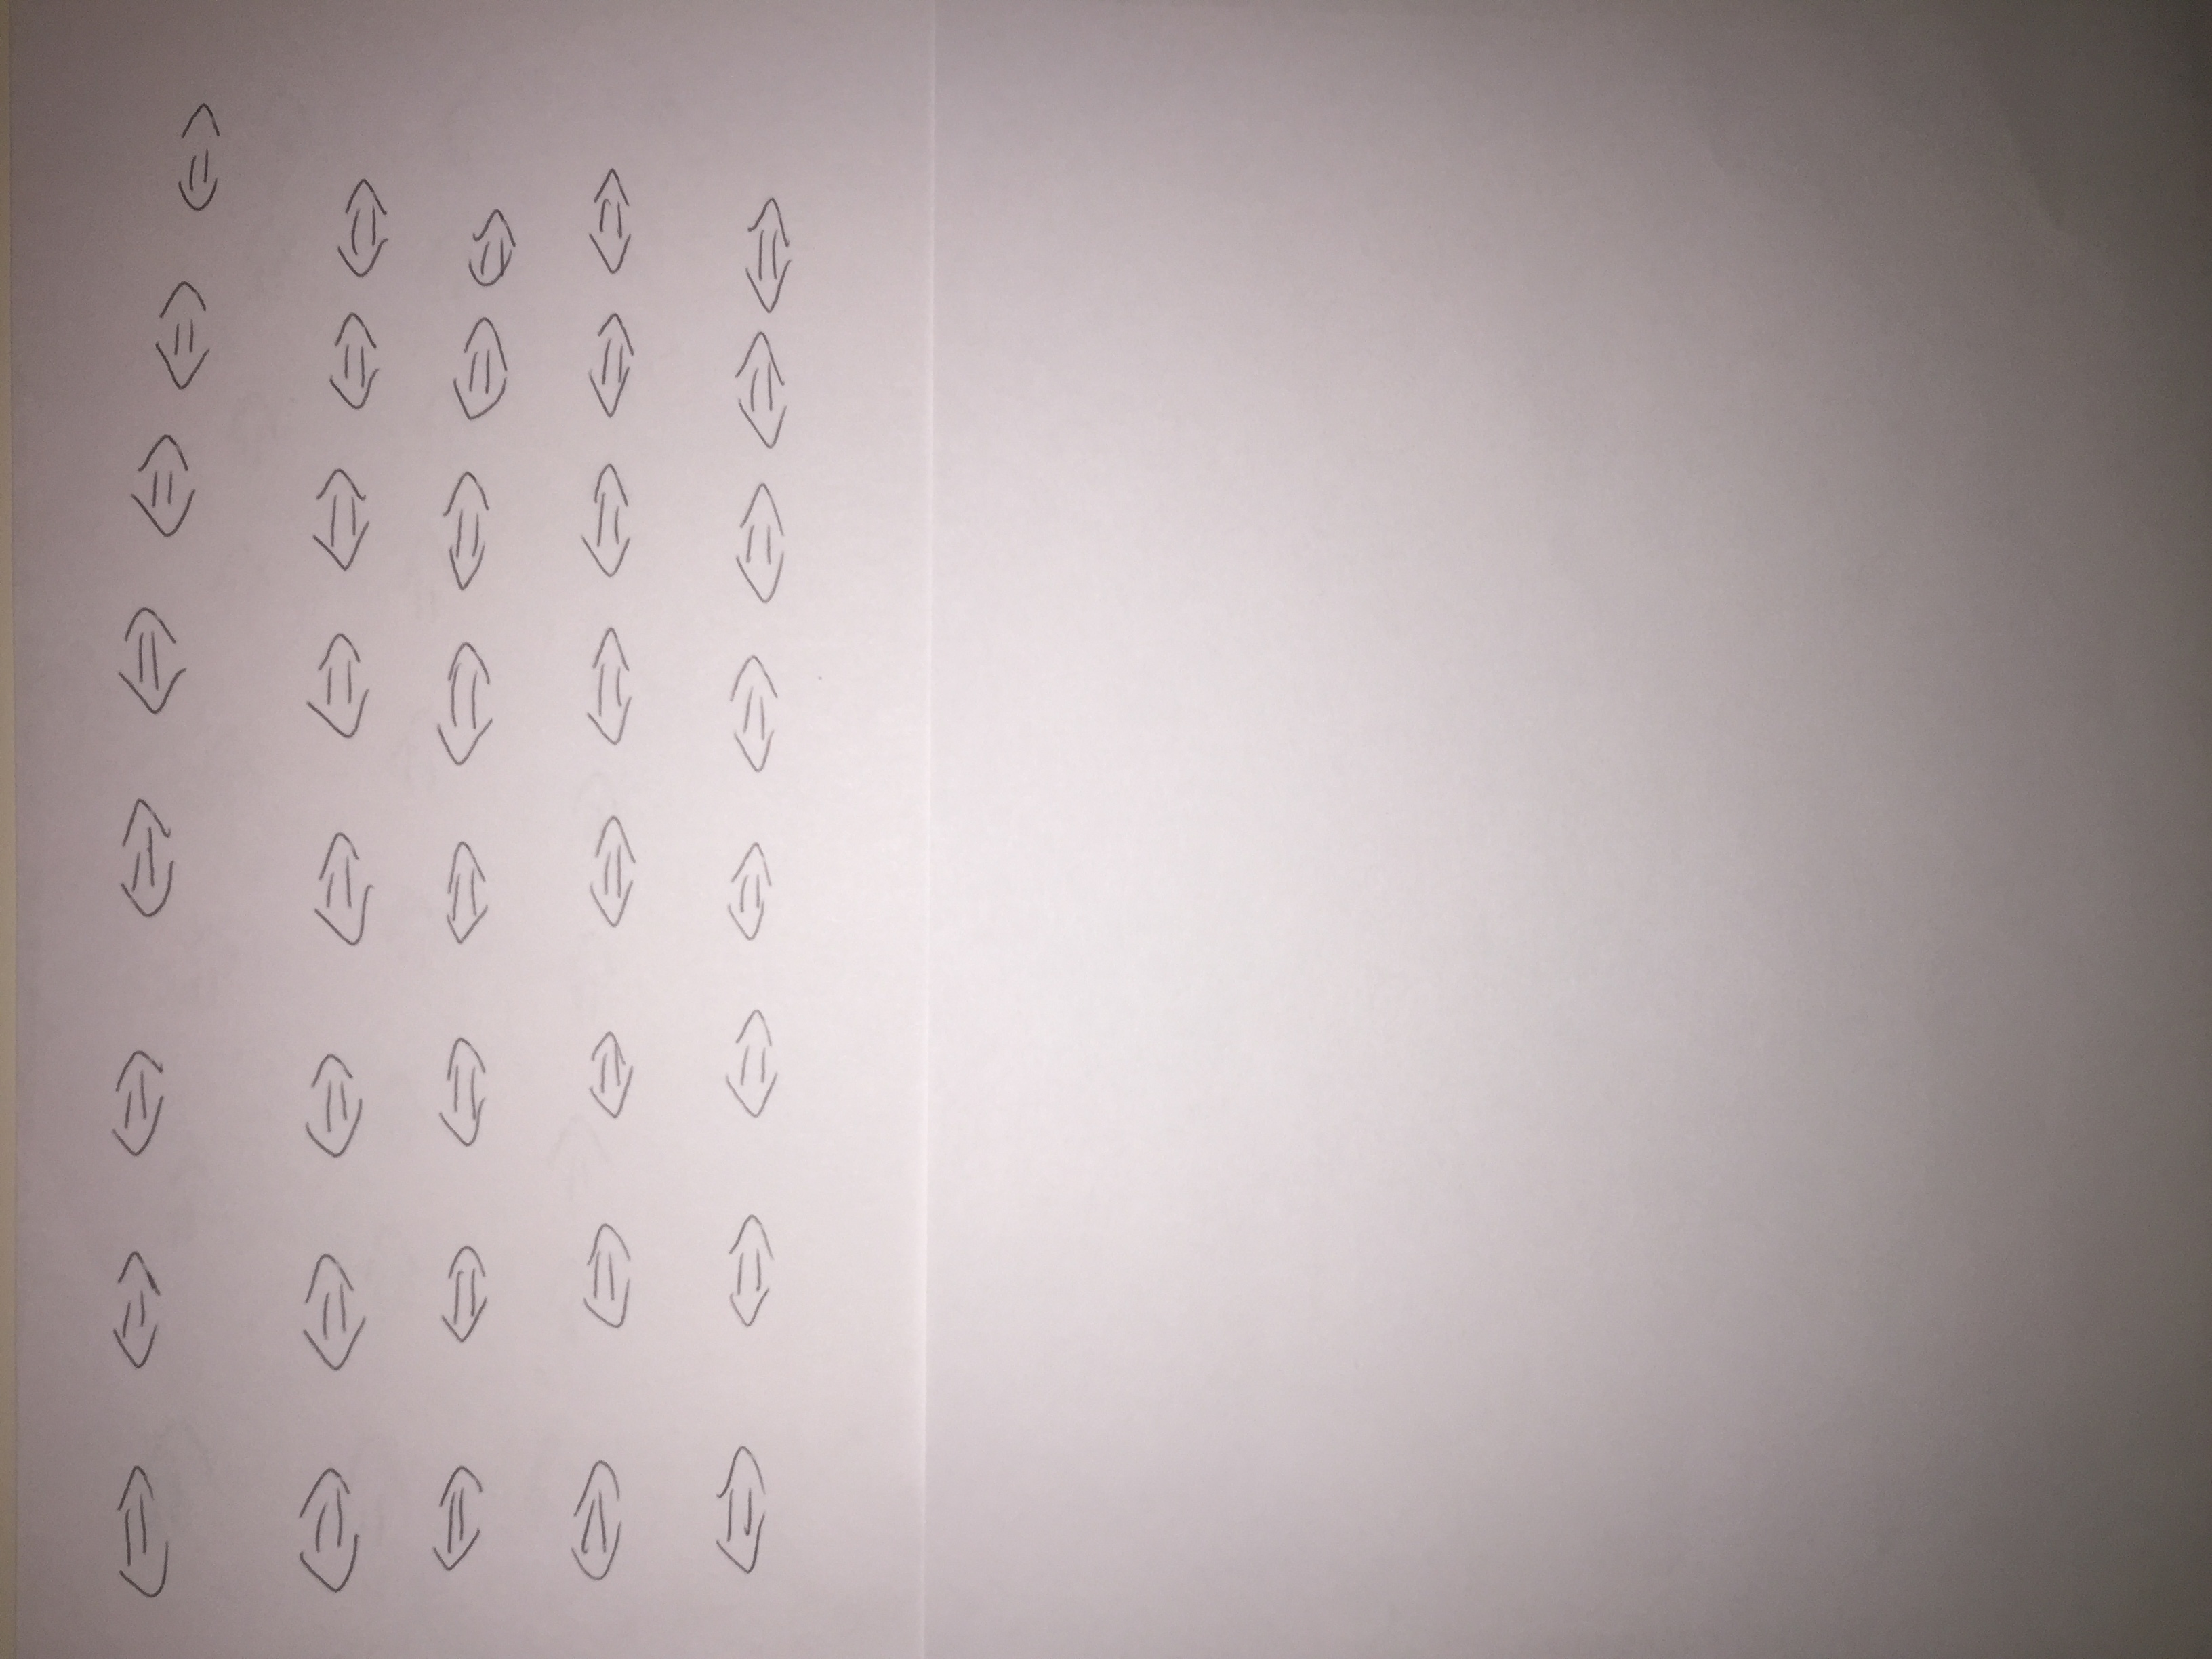 ⇔ ⇔ ⇔ ⇔ ⇔ ⇔ ⇔ ⇔
⇔ ⇔ ⇔ ⇔ ⇔ ⇔ ⇔ ⇔
⇔ ⇔ ⇔ ⇔ ⇔ ⇔ ⇔ ⇔
⇔ ⇔ ⇔ ⇔ ⇔ ⇔ ⇔ ⇔
⇔ ⇔ ⇔ ⇔ ⇔ ⇔ ⇔ ⇔